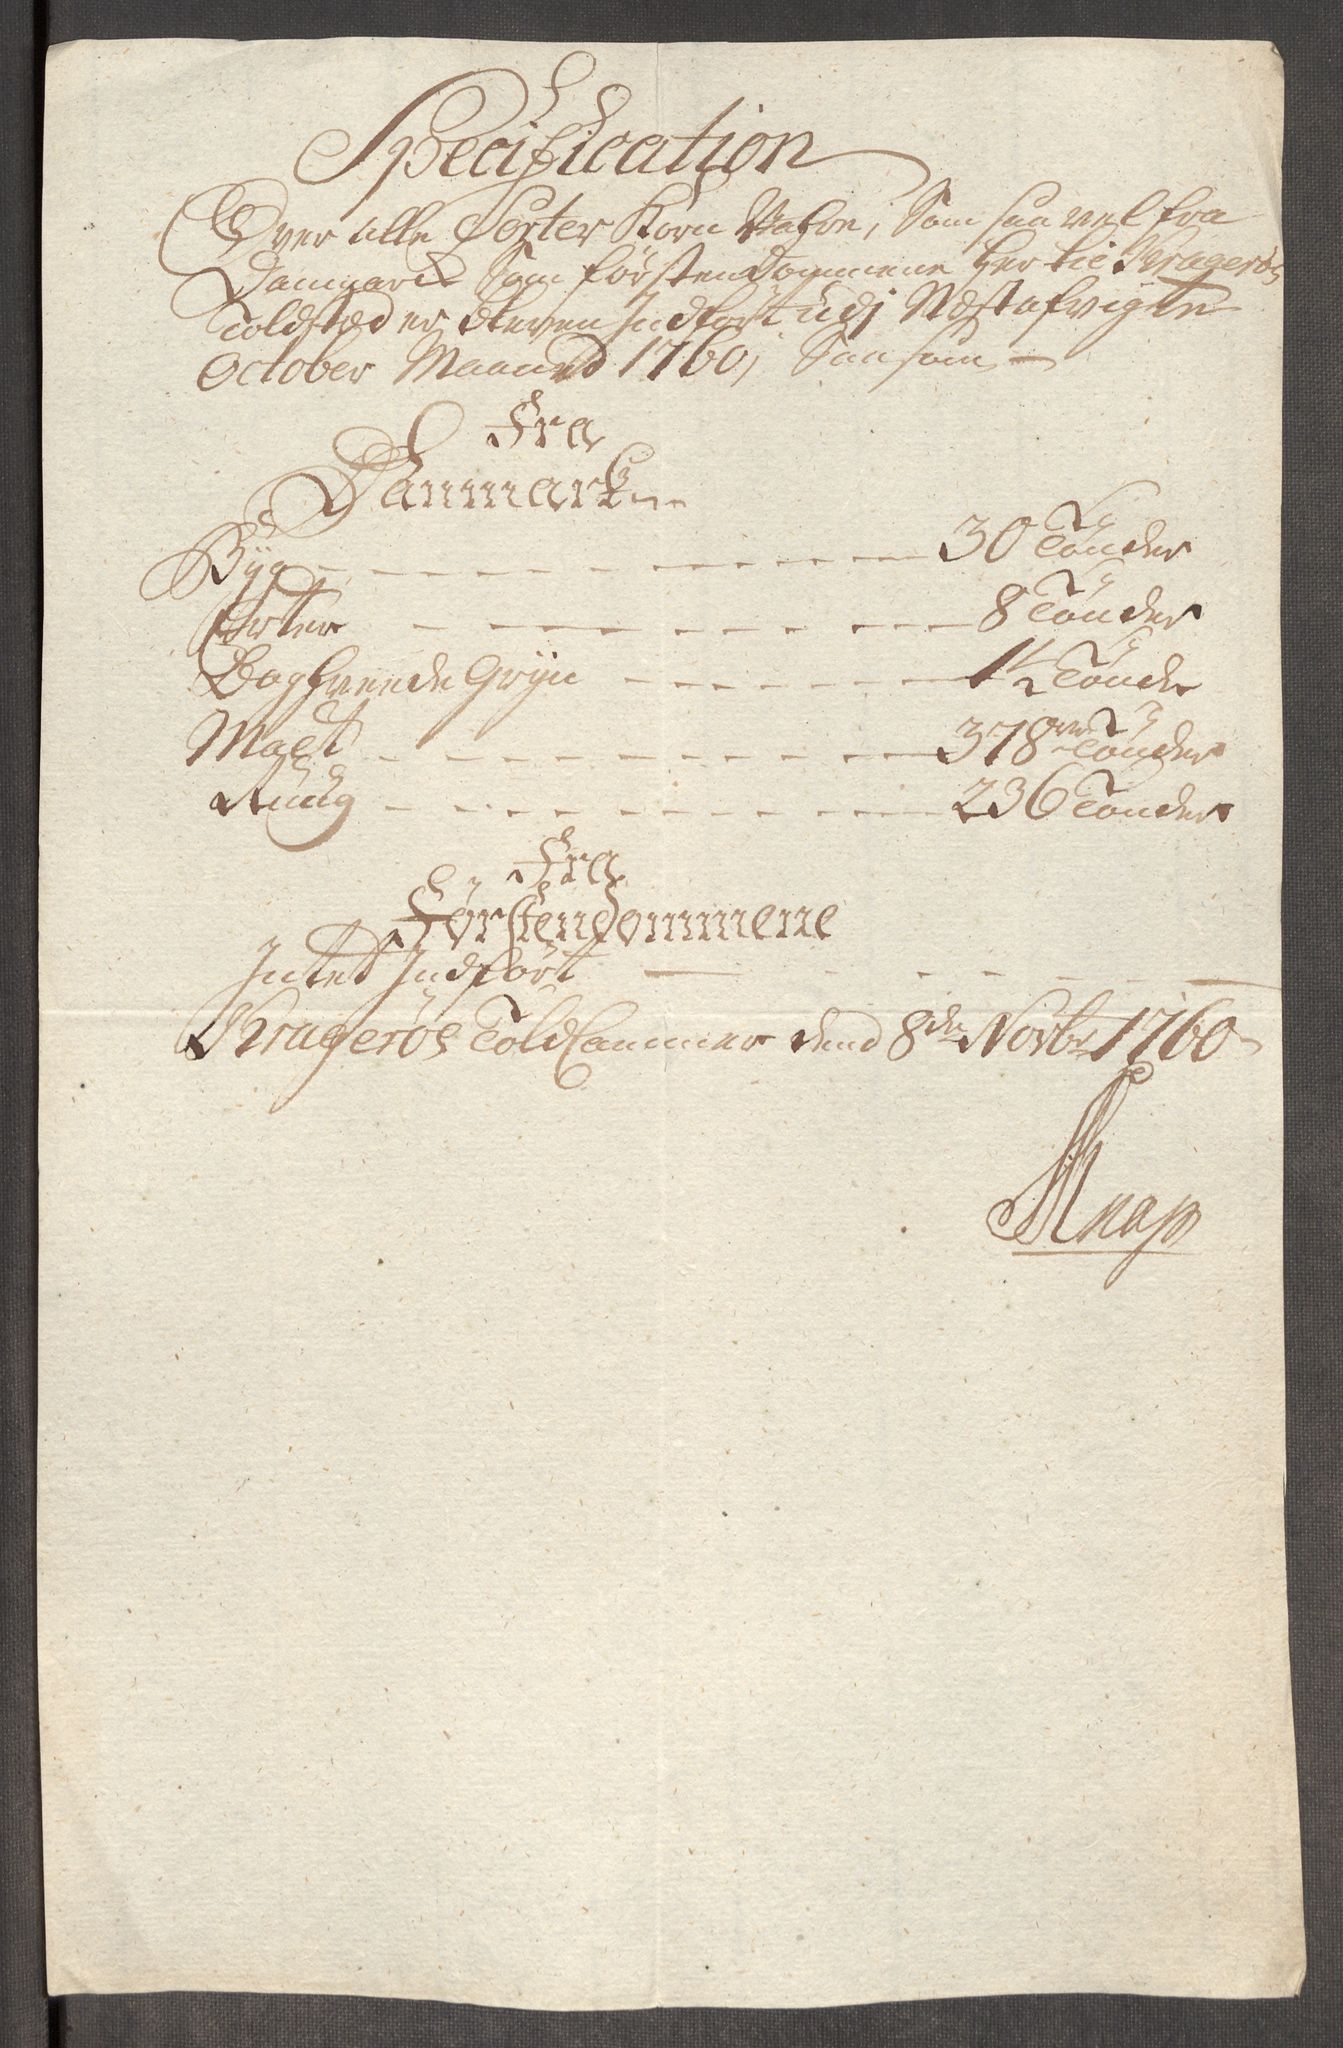 Specification
Over alle Sorter Korn Vahre, Som saa vel fra
Danmark Som førstendommene her til Kragerøes
Toldsted er bleven Indført udj Næstafvigte
October Maaned 1760, Saasom
Fra
Danmark
Byg 30 Tønder
Erter 8 Tønder
Boghveede Gryn 1½ Tønde
Malt 378 Tønder
Rug 236 Tønder
Fra
Førstendommene
Intet Indført
Kragerøes Told Cammer dend 8de Novbr 1760
Knap